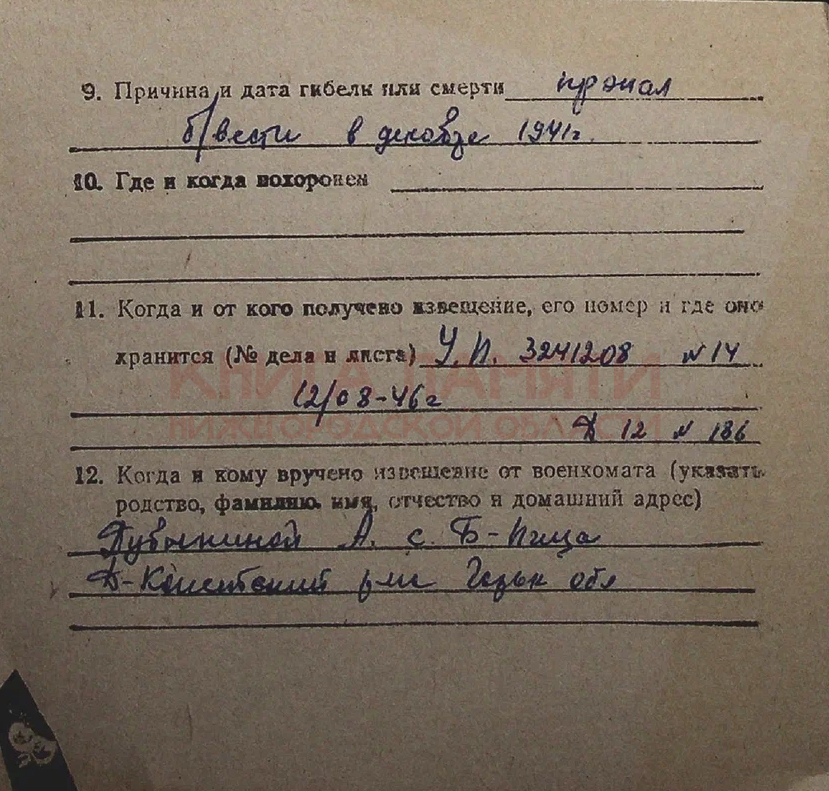 9. Причина и дата гибели или смерти пропал
б/вести в декабре 1941г.
10. Где и когда похоронен
11. Когда и от кого получено извещение, его номер и где оно
хранится (№ дела и листа) У.П. 3241208 N 14
КНИГА ПАМЯТИ
12/08-46г
НИЖЕГОРОДСКОЙ ОБЛАСТИ
Д 12 N 186
12. Когда и кому вручено извещение от военкомата (указать
родство, фамилию, имя, отчество и домашний адрес)
А. с. Б-Пица
Д-Констанский р-н Горьк обл